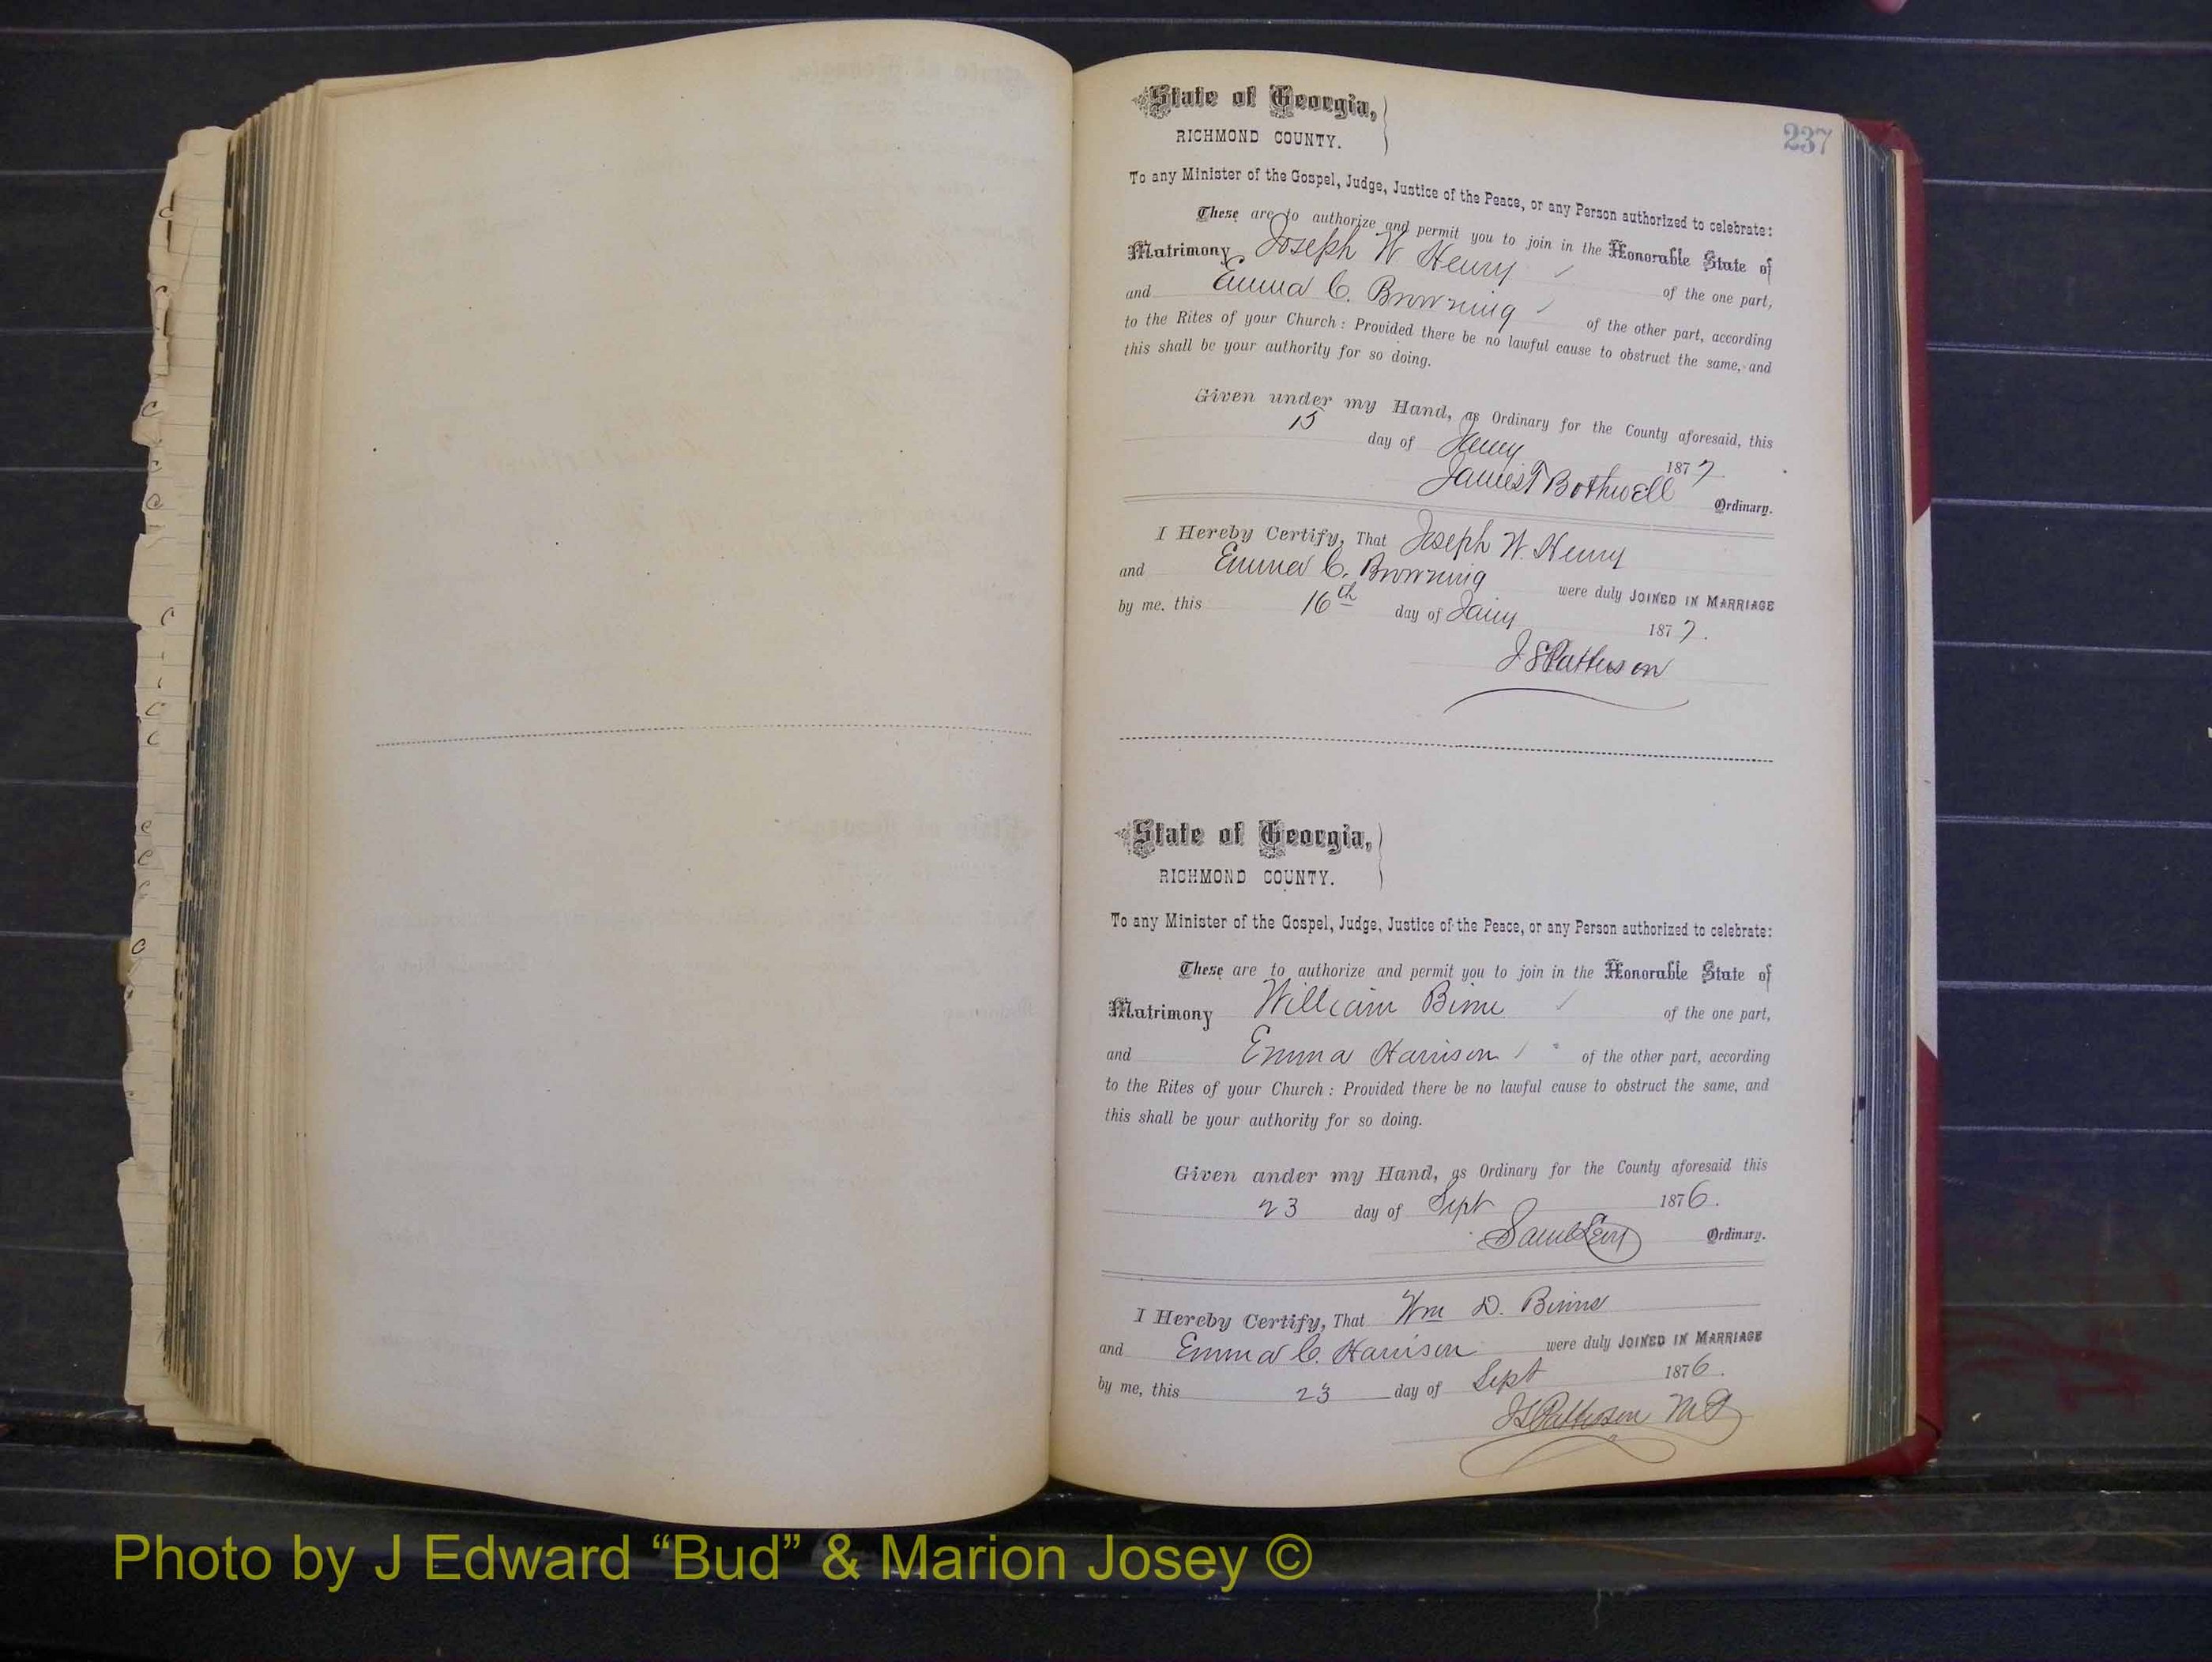 237
State of Georgia,
RICHMOND COUNTY.
To any Minister of the Gospel, Judge, Justice of the Peace, or any Person authorized to celebrate:
These are to authorize and permit you to join in the Honorable State of
Matrimony Joseph W Henry of the one part,
and Emma C. Browning of the other part, according
to the Rites of your Church: Provided there be no lawful cause to obstruct the same, and
this shall be your authority for so doing.
Given under my Hand, as Ordinary for the County aforesaid, this
15 day of Jany 1877
James T Bothwell Ordinary.
I Hereby Certify, That Joseph W. Henry
and Emma C. Browning were duly JOINED IN MARRIAGE
by me, this 16th day of Jany 1877.
J S Patterson
State of Georgia,
RICHMOND COUNTY.
To any Minister of the Gospel, Judge, Justice of the Peace, or any Person authorized to celebrate:
These are to authorize and permit you to join in the Honorable State of
Matrimony William Binns of the one part,
and Emma Harrison of the other part, according
to the Rites of your Church: Provided there be no lawful cause to obstruct the same, and
this shall be your authority for so doing.
Given under my Hand, as Ordinary for the County aforesaid this
23 day of Sept 1876.
Saml Levy Ordinary.
I Hereby Certify, That Wm D. Binns
and Emma C. Harrison were duly JOINED IN MARRIAGE
by me, this 23 day of Sept 1876.
J S Patterson M G
Photo by J Edward “Bud” & Marion Josey ©